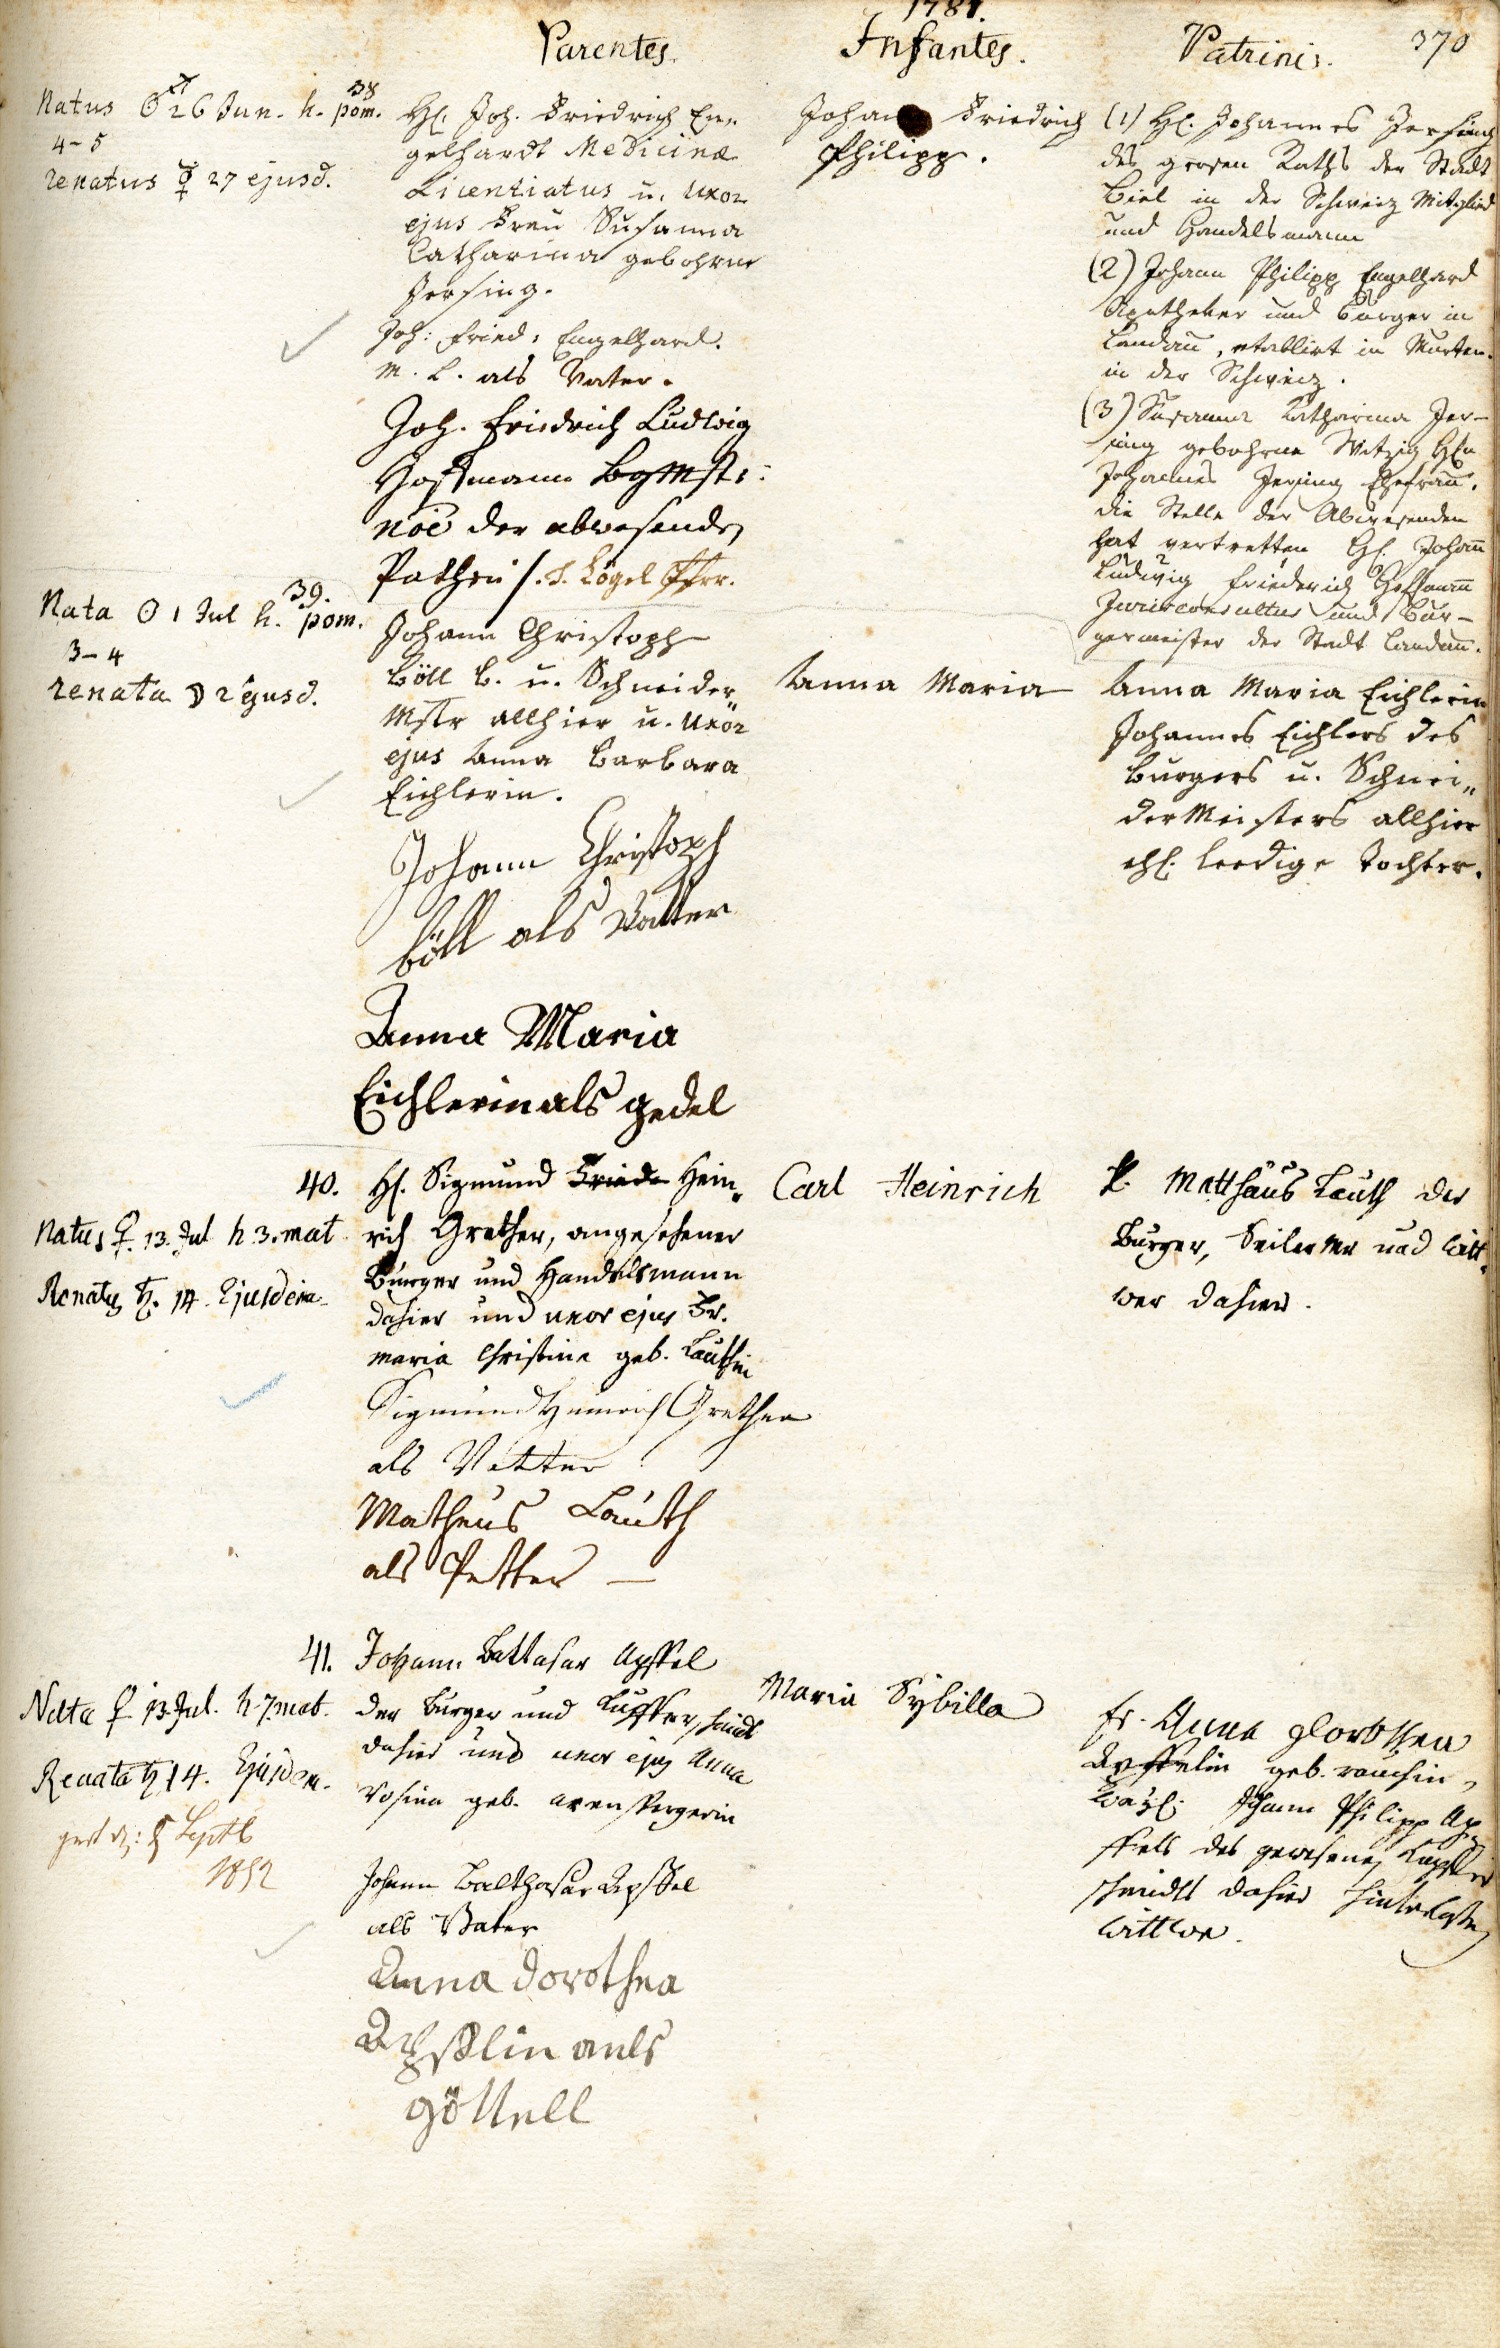 1781.
Parentes. Infantes. Patrini. 370
38
Natus ☿ 26 Jun. h. pom.
4-5
renatus ☿ 27 ejusd.
H. Joh. Friedrich En-
gelhardt Medicinæ
Licentiatus u. Uxor
ejus Frau Susanna
Catharina gebohrne
Jersing.
Joh: Fried: Engelhard.
M. L. als Vater.
Joh. Friedrich Ludwig
Hoffmann Bgmstr:
noe der abwesenden
Pathen /. Lögel Pfrr.
Johann Friedrich
Philipp.
(1) H. Johannes Jersing
des grosen Raths der Stadt
Biel in der Schweiz Mitglied
und Handelsmann
(2) Johann Philipp Engelhard
Apotheker und Bürger in
Landau, etablirt in Murten
in der Schweiz.
(3) Susanna Catharina Jer-
sing gebohrne Witzig Hn
Johannes Jersing Ehefrau.
die Stelle der Abwesenden
hat vertretten H. Johann
Ludwig Friederich Hoffmann
Jurisconsultus und Bur-
germeister der Stadt Landau.
39.
Nata ☉ 1 Jul h. pom.
3-4
renata ☽ 2 ejusd.
Johann Christoph
Böll B. u. Schneider
Mstr allhier u. Uxor
ejus Anna Barbara
Eichlerin.
Johann Christoph
böll als Vatter
Anna Maria
Eichlerin als gedel
Anna Maria
Anna Maria Eichlerin
Johannes Eichlers des
Burgers u. Schnei„
der Meisters allhier
ehl. leedige Tochter.
40.
Natus ♀. 13. Jul h. 3. mat
Renatus ♄. 14. Ejusdem
H. Sigmund Fried Hein„
rich Grether, angesehener
Bürger und Handelsmann
dahier und uxor ejus Fr.
maria Christina geb. Lauthin
Sigmund Heinrich Grether
als Vatter
Matheus Lauth
als Petter
Carl Heinrich
Matthäus Lauth der
Burger, Seiler Mr und Witt„
wer dahier.
41.
Nata ♀ 13. Jul. h. 7. mat.
Renata ♄ 14. Ejusdem.
Septb
1852
Johann Baltasar Apffel
der burger und Kupfferschmidt
dahier und uxor ejus Anna
Rosina geb.
Johann Balthasar Apffel
als Vater
Anna dorothea
Apfflin anls
göttell
Maria Sybilla
fr. Anna Dorothea
Apffelin geb. rauchin,
Johann Philipp Ap„
ffels des gewesenen Kupffer
schmidts dahier hinterlaßene
Wittwe.